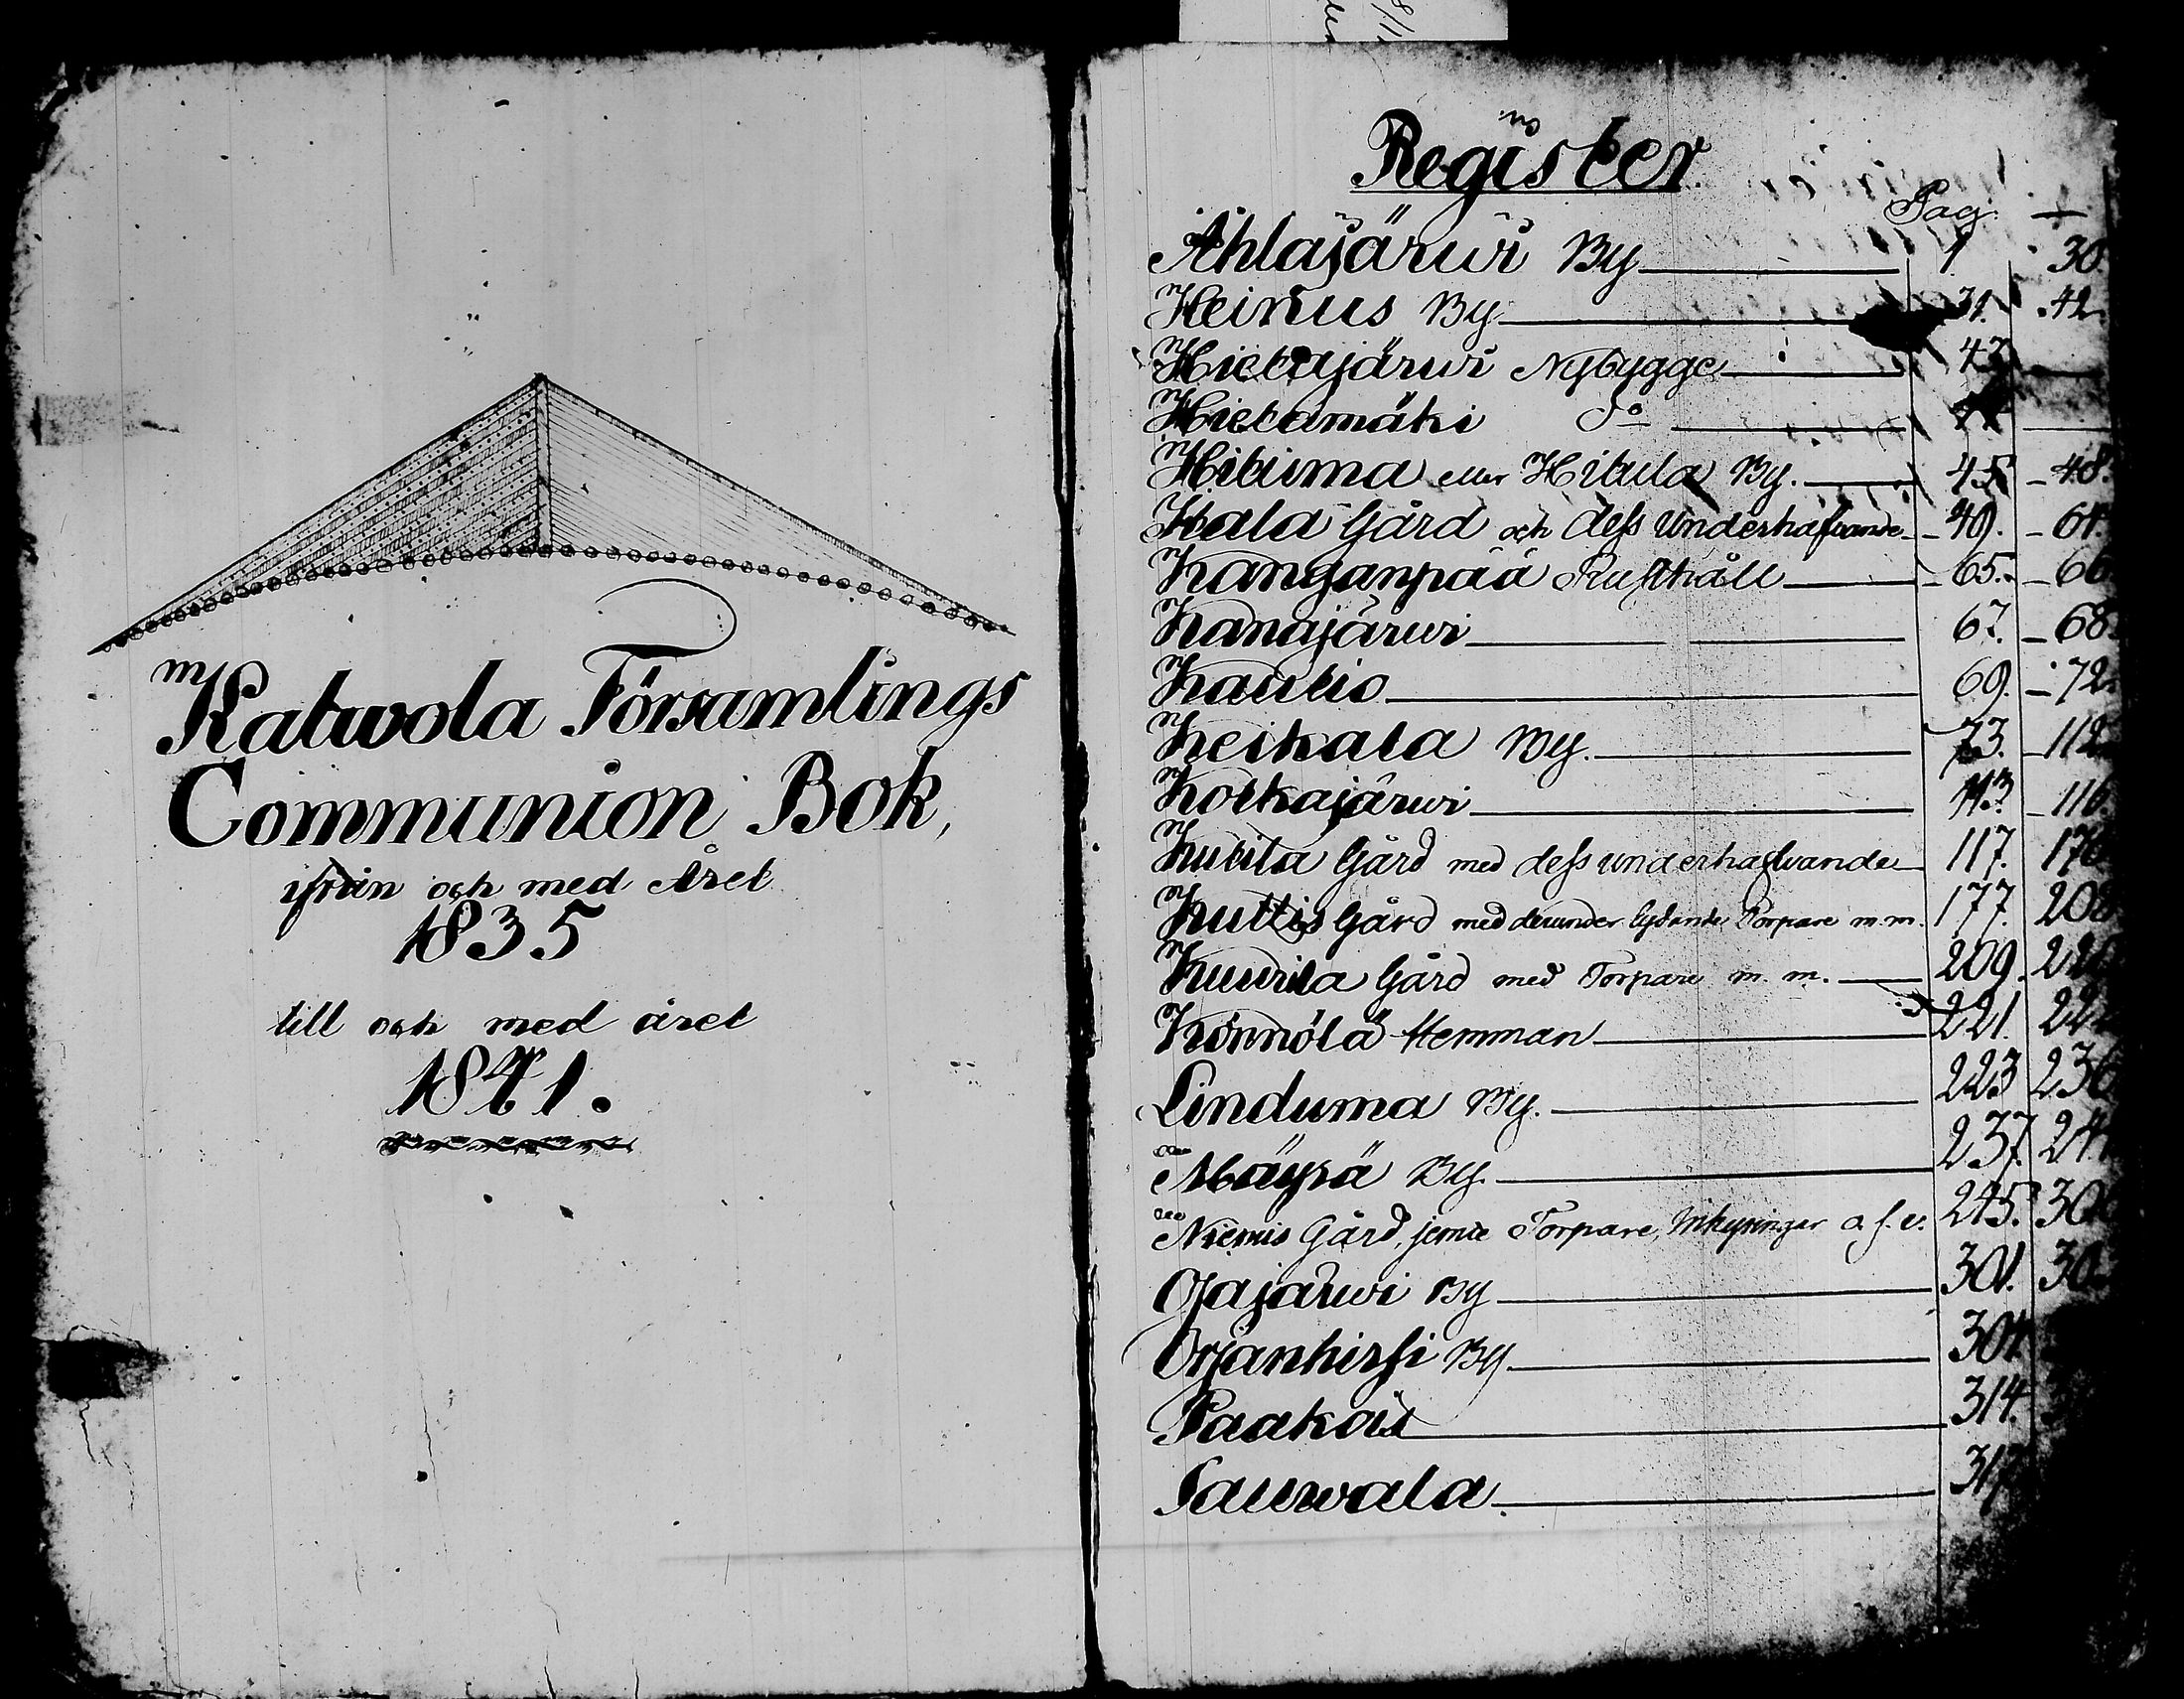 Katwola Församlings
Communion Bok,
ifrån och med Året
1835
till och med året
1841.
Register
Pag. —
Ahlajärwi By 1. 30.
Heinus By 31. 42.
Hietajärwi Nybygge 43
Hietamäki Do
Hituma eller Hitula By. 45 – 48.
Kala Gård och dess underhafvande – 49. – 64.
Kanganpää Rusthåll – 65. – 66
Kanajärwi 67. – 68.
Kautio 69. – 72.
Keikala By. 73. – 112
Koikajärwi 113. – 116.
Kutila Gård med dess underhafwande 117. 176
Kuttis Gård med derunder lydande Torpare m.m. 177. 208
Kuurila Gård med Torpare m. m. 209.
Könnölä Hemman 221.
Linduma By. 223 236
Mäyrä By. 237.
Niemis Gård, jemte Torpare, Inhysingar o. s. v. 245.
Ojajärwi By 301.
Orjanhirsi By 304.
Paakais 314.
Sauwala 317